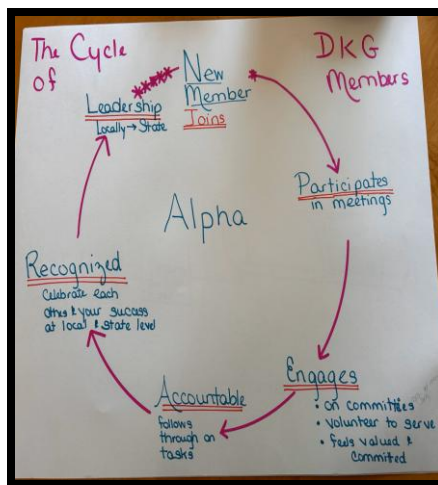 The Cycle
of
DKG
Members
New
Member
Joins
Participates
in meetings
Engages
• on committees
• volunteer to serve
• feels valued &
committed
Accountable
follows
through on
tasks
Recognized
Celebrate each
other & your success
at local & state level
Leadership
Locally → State
Alpha